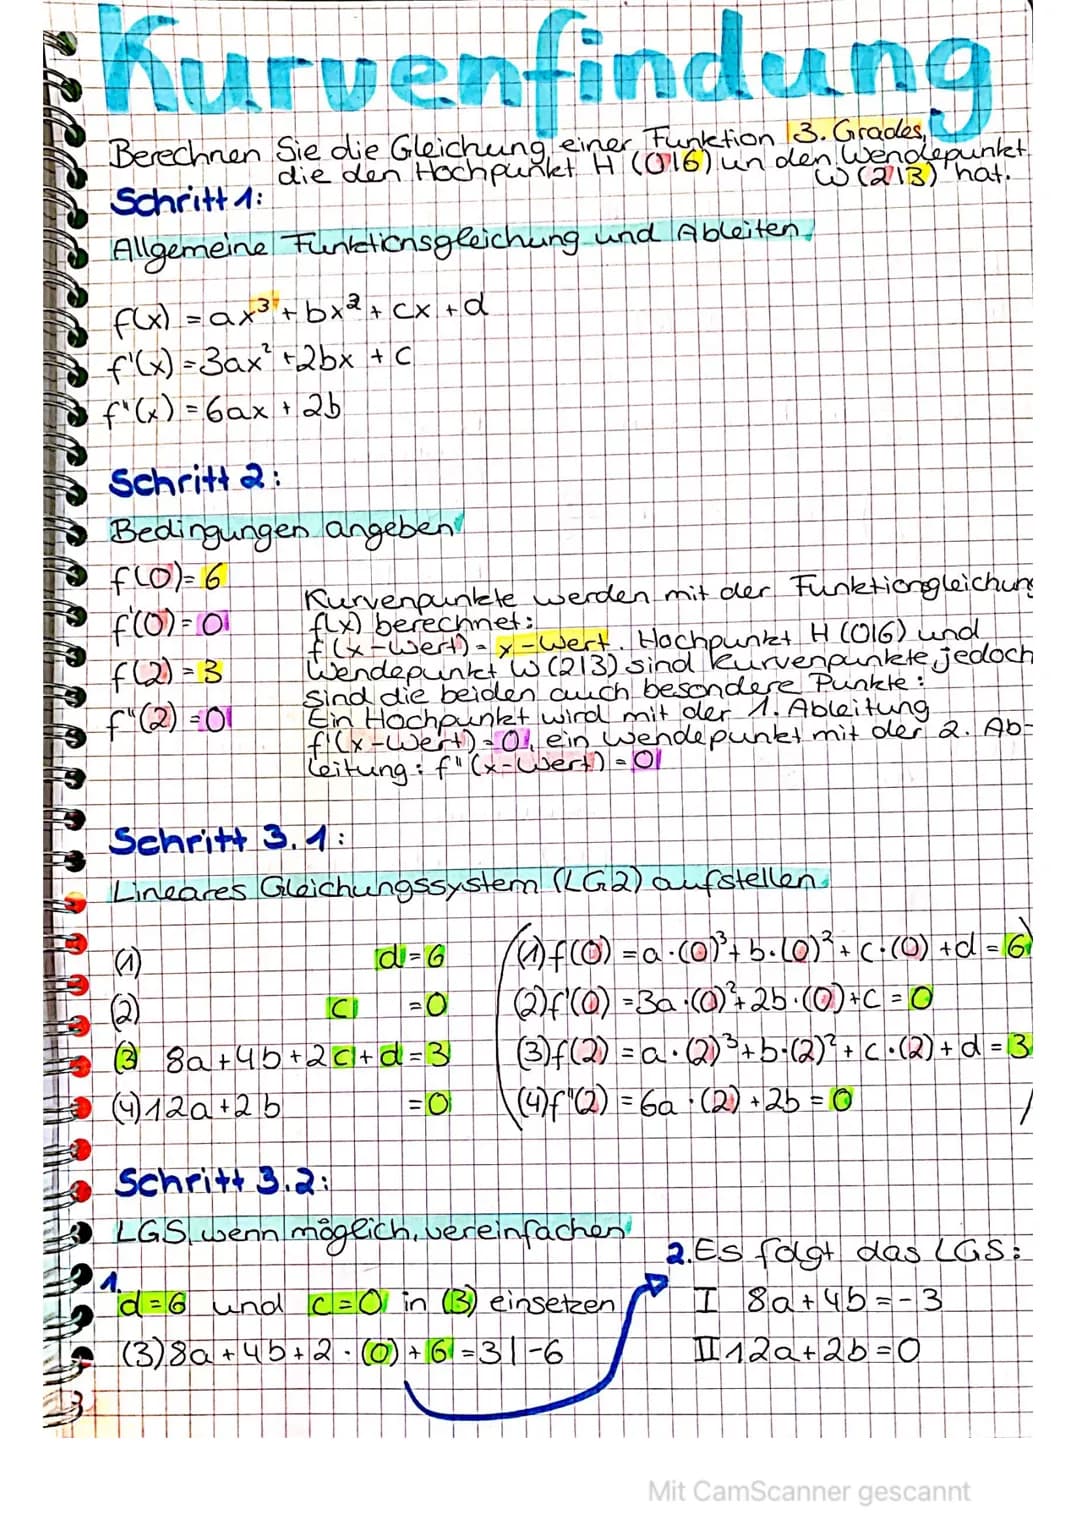 Kurvenfindung
Berechnen Sie die Gleichung einer Funktion 3. Grades,
die den Hochpunkt H (0|6) un den Wendepunkt
W (2|3) hat.
Schritt 1:
Allgemeine Funktionsgleichung und Ableiten
f(x) = ax³ + bx² + cx + d
f'(x) = 3ax² + 2bx + c
f"(x) = 6ax + 2b
Schritt 2:
Bedingungen angeben
f(0) = 6
f'(0) = 0
f(2) = 3
f"(2) = 0
Kurvenpunkte werden mit der Funktiongleichung
f(x) berechnet:
f(x-Wert) = y-Wert. Hochpunkt H (0|6) und
Wendepunkt W (2|3) sind Kurvenpunkte, jedoch
sind die beiden auch besondere Punkte:
Ein Hochpunkt wird mit der 1. Ableitung
f'(x-Wert) = 0, ein Wendepunkt mit der 2. Ab-
leitung: f"(x-Wert) = 0
Schritt 3.1:
Lineares Gleichungssystem (LG2) aufstellen
(1) d = 6
(2) c = 0
(3) 8a + 4b + 2c + d = 3
(4) 12a + 2b = 0
(1) f(0) = a · (0)³ + b · (0)² + c · (0) + d = 6
(2) f'(0) = 3a · (0)² + 2b · (0) + c = 0
(3) f(2) = a · (2)³ + b · (2)² + c · (2) + d = 3
(4) f"(2) = 6a · (2) + 2b = 0
Schritt 3.2:
LGS, wenn möglich, vereinfachen
1.
d = 6 und c = 0 in (3) einsetzen
(3) 8a + 4b + 2 · (0) + 6 = 3 | -6
2. Es folgt das LGS:
I 8a + 4b = -3
II 12a + 2b = 0
Mit CamScanner gescannt